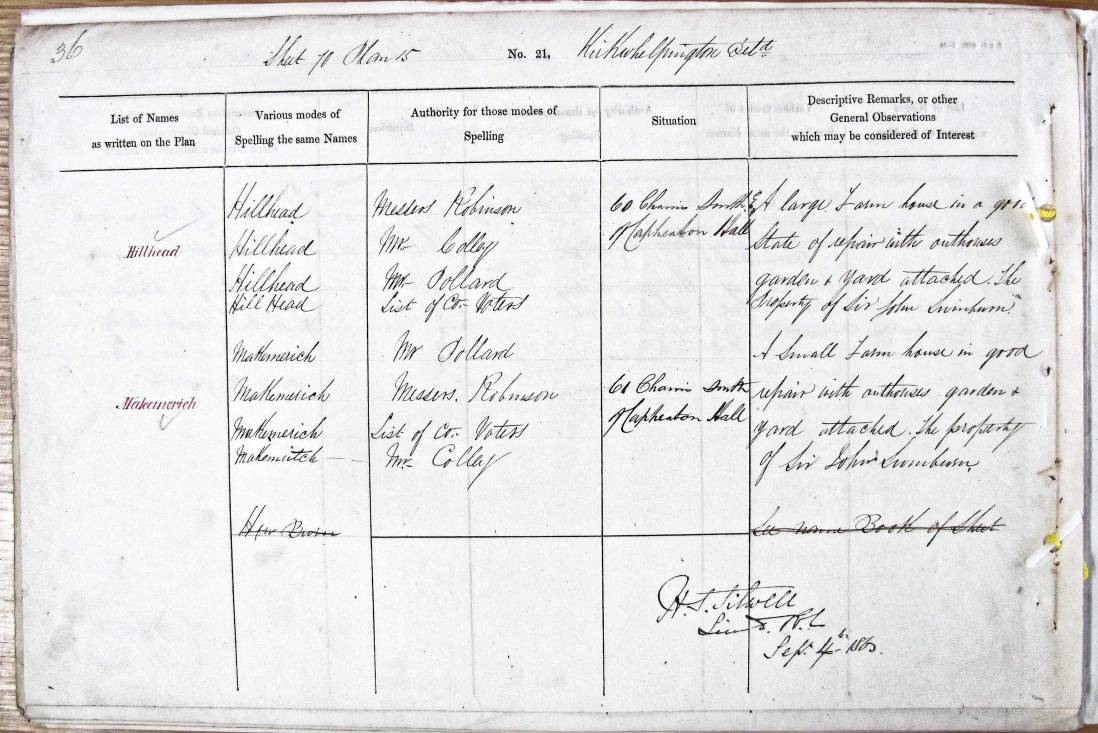 36
Sheet 70 Plan 15
No. 21,
Kirkwhelpington Detd
List of Names
as written on the Plan
Various modes of
Spelling the same Names
Authority for those modes of
Spelling
Situation
Descriptive Remarks, or other
General Observations
which may be considered of Interest
Hillhead
Hillhead
Hillhead
Hillhead
Hill Head
Messers Robinson
Mr Colley
Mr Pollard
List of Co. Voters
60 Chains South E
of Capheaton Hall
A large Farm house in a good
State of repair with outhouses
garden & yard attached. The
Property of Sir John Swinburn.
Makemerich
Makemerich
Makemerich
Makemerich
Makemritch
Mr Pollard
Messers. Robinson
List of Co. Voters
Mr Colley
61 Chains South
of Capheaton Hall
A Small Farm house in good
repair with outhouses garden &
yard attached. The property
of Sir John Swinburn.
See name Book of Sheet
H.S. Sitwell
Lieut. R.E
Sept. 4th